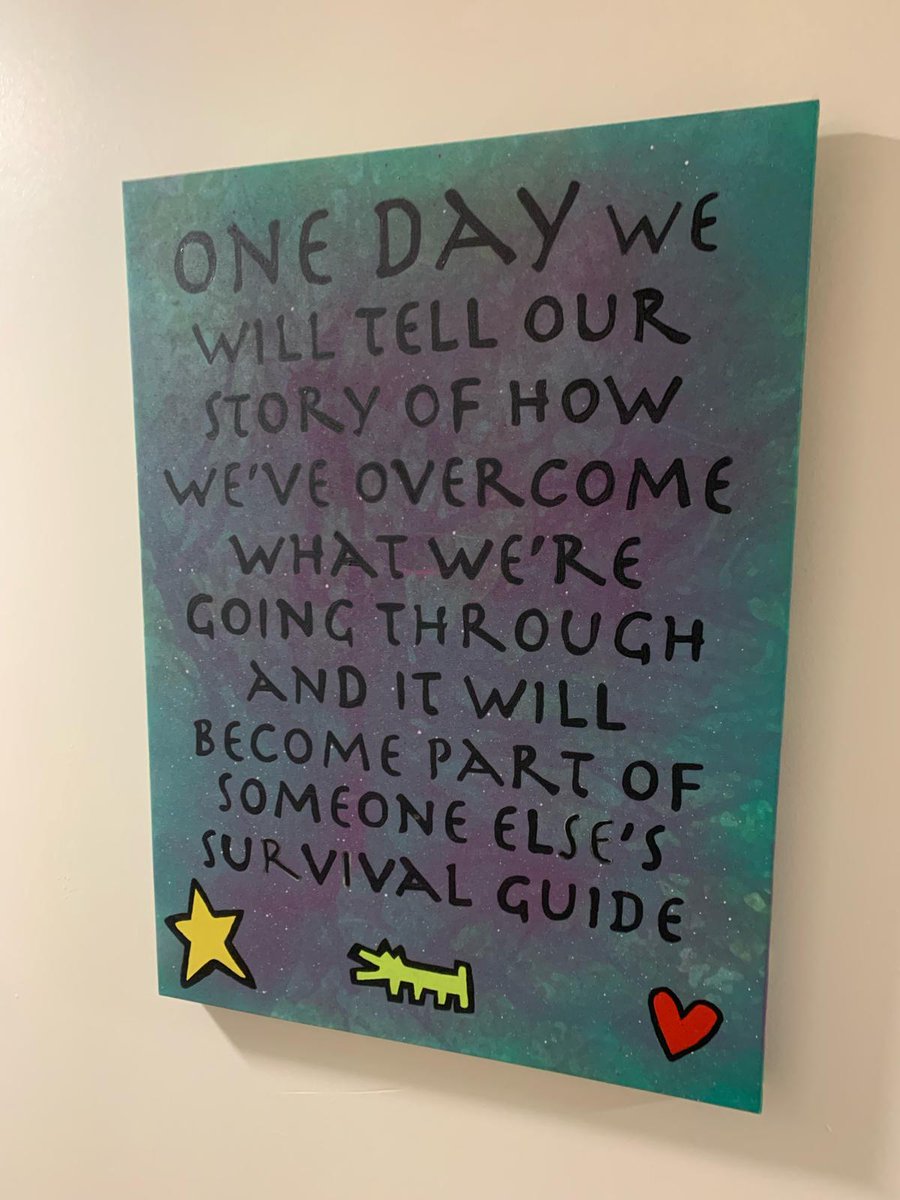 ONE DAY WE
WILL TELL OUR
STORY OF HOW
WE'VE OVERCOME
WHAT WE'RE
GOING THROUGH
AND IT WILL
BECOME PART OF
SOMEONE ELSE'S
SURVIVAL GUIDE